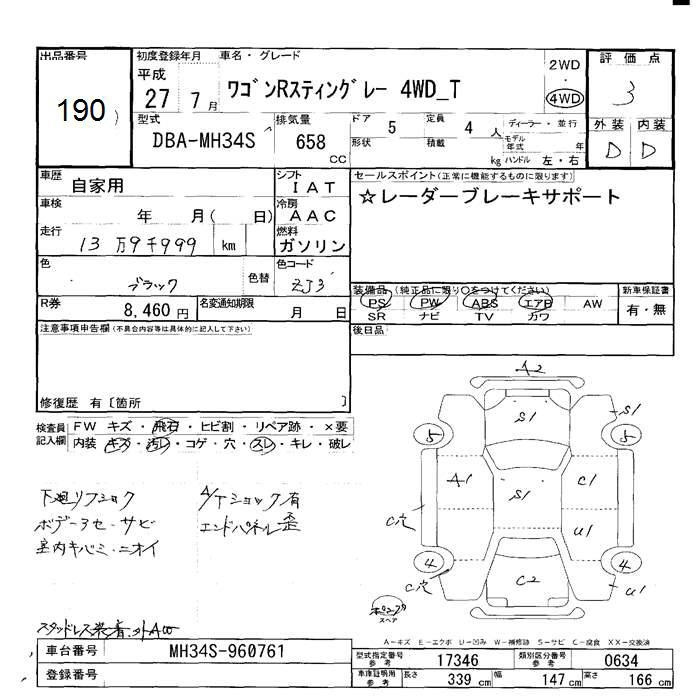 出品番号
190
初度登録年月
平成
27 7月
車名・グレード
ワゴンRスティングレー 4WD_T
2WD
4WD
評価点
3
型式
DBA-MH34S
排気量
658
CC
ドア 5 定員 4 人
形状 積載 kg
ディーラー・並行
モデル年式 年
ハンドル 左・右
外装 内装
D D
車歴
自家用
シフト
IAT
車検
年 月( 日)
冷房
AAC
走行
13万9千999 km
燃料
ガソリン
色
ブラック
色替
色コード
ZJ3
R券
8,460 円
名変通知期限
月 日
セールスポイント(正常に機能するものに限ります)
☆レーダーブレーキサポート
装備品 (純正品に限り○をつけてください)
PS PW ABS エアB AW
SR ナビ TV カワ
新車保証書
有・無
後日品
注意事項申告欄(不具合内容等は具体的に記入して下さい)
修復歴 有〔箇所 〕
検査員記入欄
FW キズ・飛石・ヒビ割・リペア跡・×要
内装・キズ・汚レ・コゲ・穴・スレ・キレ・破レ
下廻リフショク
ボデー3セ・サビ
室内キバミ・ニオイ
A/Tショック有
エンドパネル歪
スタッドレス装着・外AW
A2
S1
S1
5
5
A1
C1
S1
C穴
U1
4
4
C穴
C2
U1
スペア
A-キズ E-エクボ U-凹み W-補修跡 S-サビ C-腐食 XX-交換済
車台番号
MH34S-960761
登録番号
型式指定番号 参考
17346
類別区分番号 参考
0634
車庫証明用 参考
長さ 339 cm 幅 147 cm 高さ 166 cm